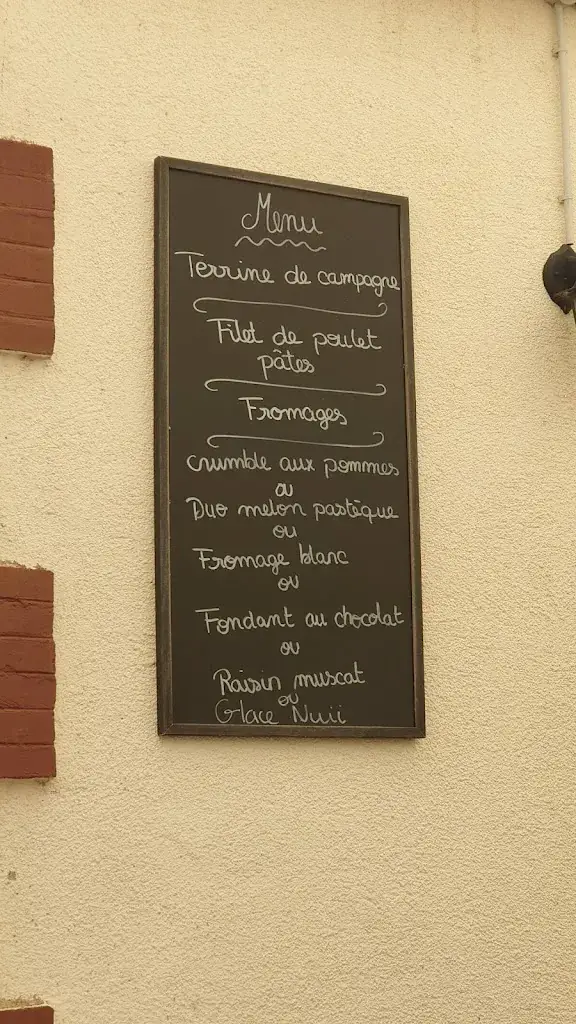 Menu
Terrine de campagne
Filet de poulet
pâtes
Fromages
crumble aux pommes
ou
Duo melon pastèque
ou
Fromage blanc
ou
Fondant au chocolat
ou
Raisin muscat
ou
Glace Nuii